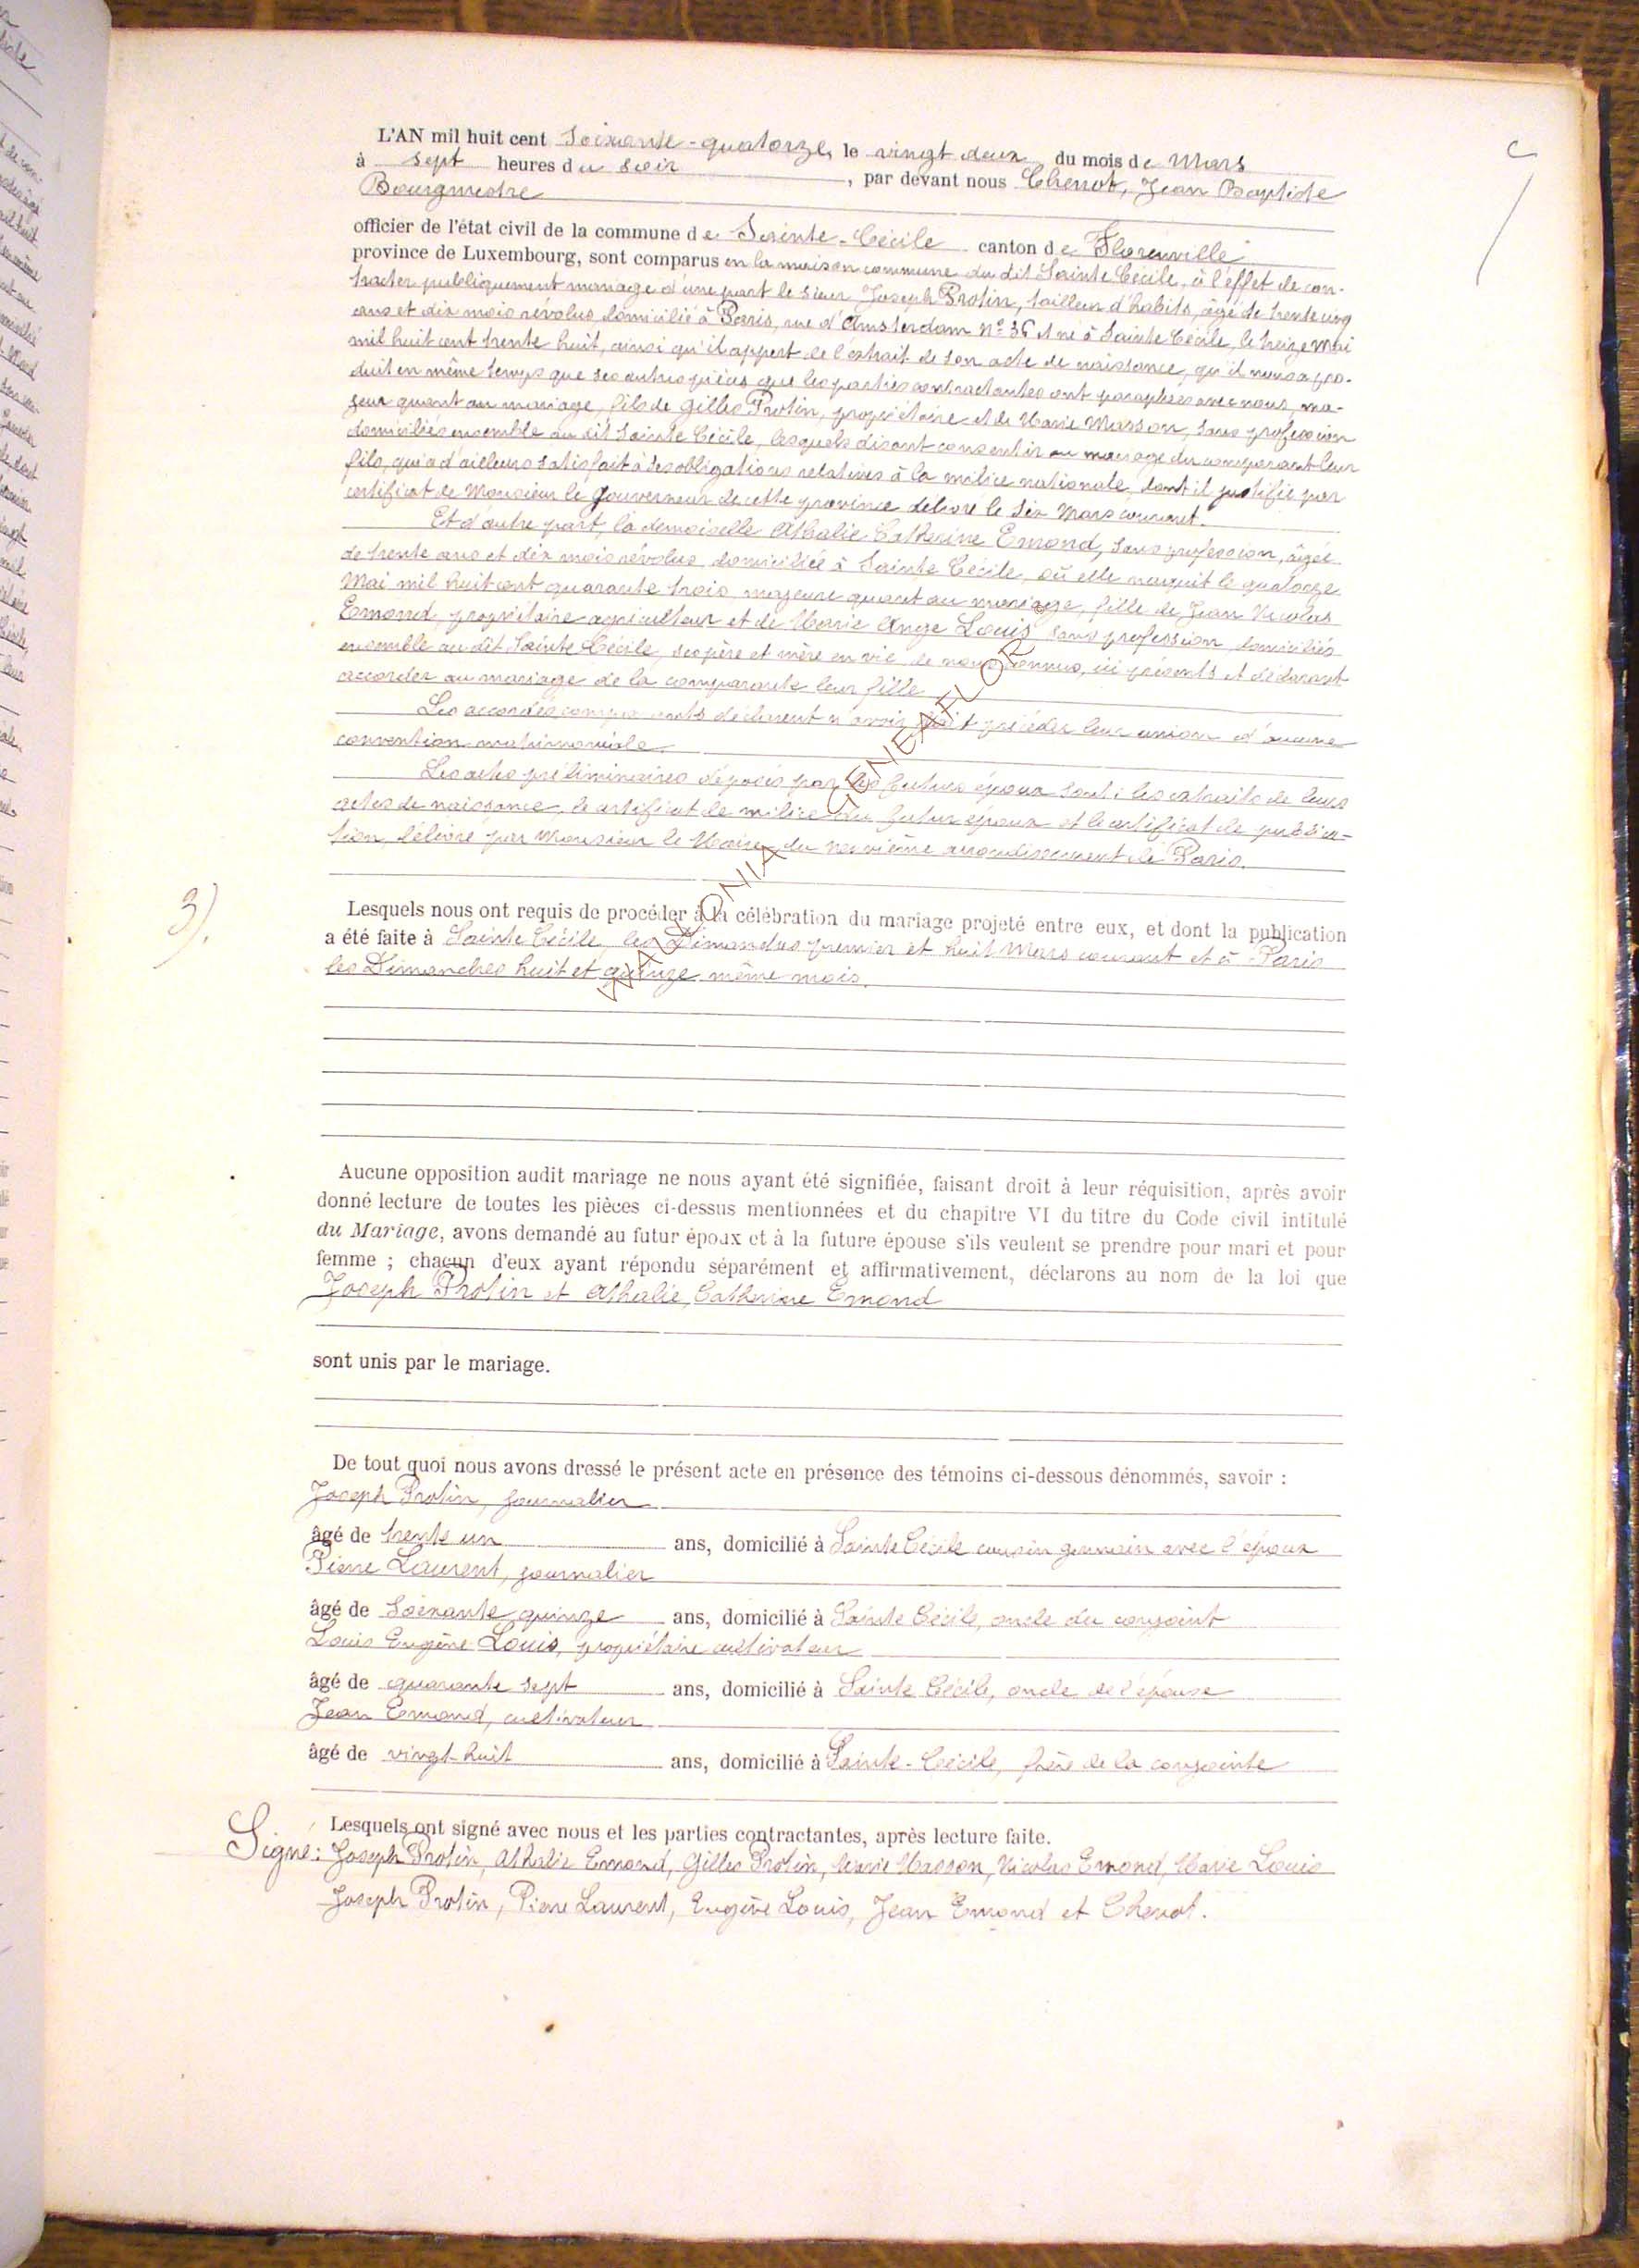 L'AN mil huit cent Soixante-quatorze, le vingt deux du mois de Mars
à sept heures du soir, par devant nous Chenot, Jean Baptiste
Bourgmestre
officier de l'état civil de la commune de Sainte-Cécile canton de Florenville
province de Luxembourg, sont comparus en la maison commune du dit Sainte Cécile, à l'effet de con-
tracter publiquement mariage d'une part le sieur Joseph Protin, tailleur d'habits, âgé de trente cinq
ans et dix mois révolus domicilié à Paris, rue d'Amsterdam N° 36 et né à Sainte Cécile, le treize Mai
mil huit cent trente huit, ainsi qu'il appert de l'extrait de son acte de naissance, qu'il nous a pro-
duit en même temps que ses autres pièces que les parties contractantes ont paraphées avec nous, ma-
jeur quant au mariage, fils de Gilles Protin, propriétaire et de Marie Masson, sans profession
domiciliés ensemble au dit Sainte Cécile, lesquels disant consentir au mariage du comparant leur
fils, qui a d'ailleurs satisfait à ses obligations relatives à la milice nationale, dont il justifie par
certificat de Monsieur le Gouverneur de cette province délivré le Six Mars courant.
Et d'autre part, la demoiselle Athalie Catherine Emond, sans profession, âgée
de trente ans et dix mois révolus domiciliée à Sainte Cécile, où elle naquit le quatorze
Mai mil huit cent quarante trois, majeure quant au mariage, fille de Jean Nicolas
Emond, propriétaire agriculteur et de Marie Ange Louis sans profession, domiciliés
ensemble au dit Sainte Cécile, ses père et mère en vie, de nous connus, ici présents et déclarant
accorder au mariage de la comparante leur fille
Les accordés comparants déclarent n'avoir fait précéder leur union d'aucune
convention matrimoniale.
Les actes préliminaires déposés par les futurs époux sont: les extraits de leurs
actes de naissance, le certificat de milice du futur époux et le certificat de publica-
tion délivré par Monsieur le Maire du neuvième arrondissement de Paris.
3).
Lesquels nous ont requis de procéder à la célébration du mariage projeté entre eux, et dont la publication
a été faite à Sainte Cécile, les Dimanches premier et huit Mars courant et à Paris
les Dimanches huit et quinze même mois.
WALLONIA GENEAFLOR ©
Aucune opposition audit mariage ne nous ayant été signifiée, faisant droit à leur réquisition, après avoir
donné lecture de toutes les pièces ci-dessus mentionnées et du chapitre VI du titre du Code civil intitulé
du Mariage, avons demandé au futur époux et à la future épouse s'ils veulent se prendre pour mari et pour
femme ; chacun d'eux ayant répondu séparément et affirmativement, déclarons au nom de la loi que
Joseph Protin et Athalie, Catherine Emond
sont unis par le mariage.
De tout quoi nous avons dressé le présent acte en présence des témoins ci-dessous dénommés, savoir :
Joseph Protin, journalier
âgé de trente un ans, domicilié à Sainte Cécile cousin germain avec l'époux
Pierre Laurent, journalier
âgé de Soixante quinze ans, domicilié à Sainte Cécile, oncle du conjoint
Louis Eugène Louis, propriétaire cultivateur
âgé de quarante sept ans, domicilié à Sainte Cécile, oncle de l'épouse
Jean Emond, cultivateur
âgé de vingt-huit ans, domicilié à Sainte-Cécile, frère de la conjointe
Lesquels ont signé avec nous et les parties contractantes, après lecture faite.
Signé: Joseph Protin, Athalie Emond, Gilles Protin, Marie Masson, Nicolas Emond, Marie Louis
Joseph Protin, Pierre Laurent, Eugène Louis, Jean Emond et Chenot.